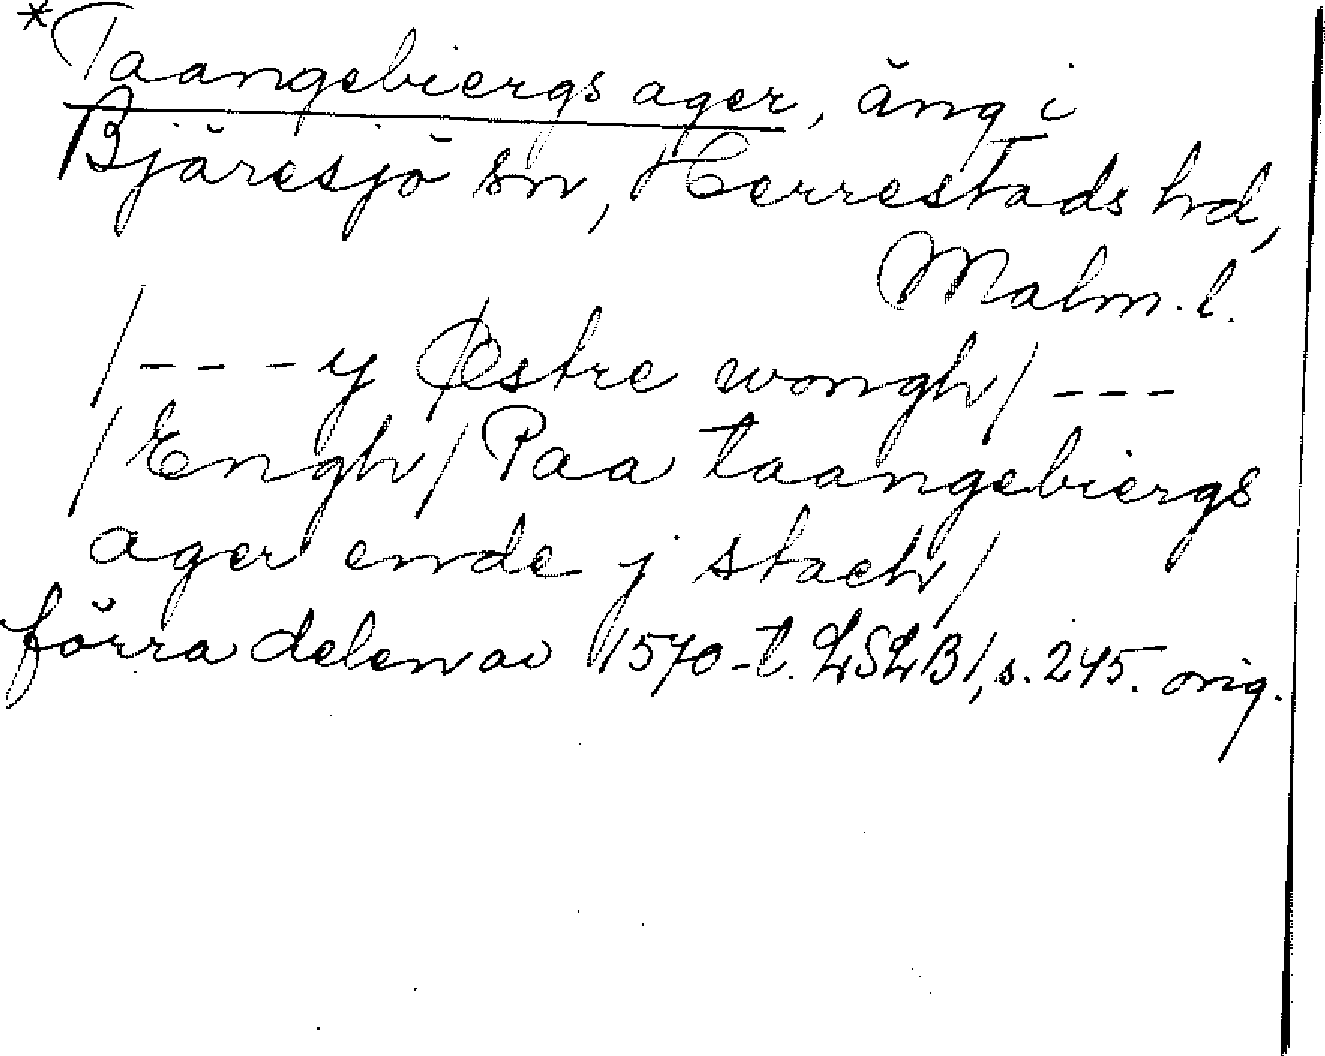 *Taangebiergs ager, äng i
Bjäresjö sn, Herrestads hd,
Malm. l.
/ - - - y Østre wongh / - - -
/ Engh / Paa taangebiergs
ager ende j stach /
förra delen av 1570-t. LSLB1, s. 245. orig.